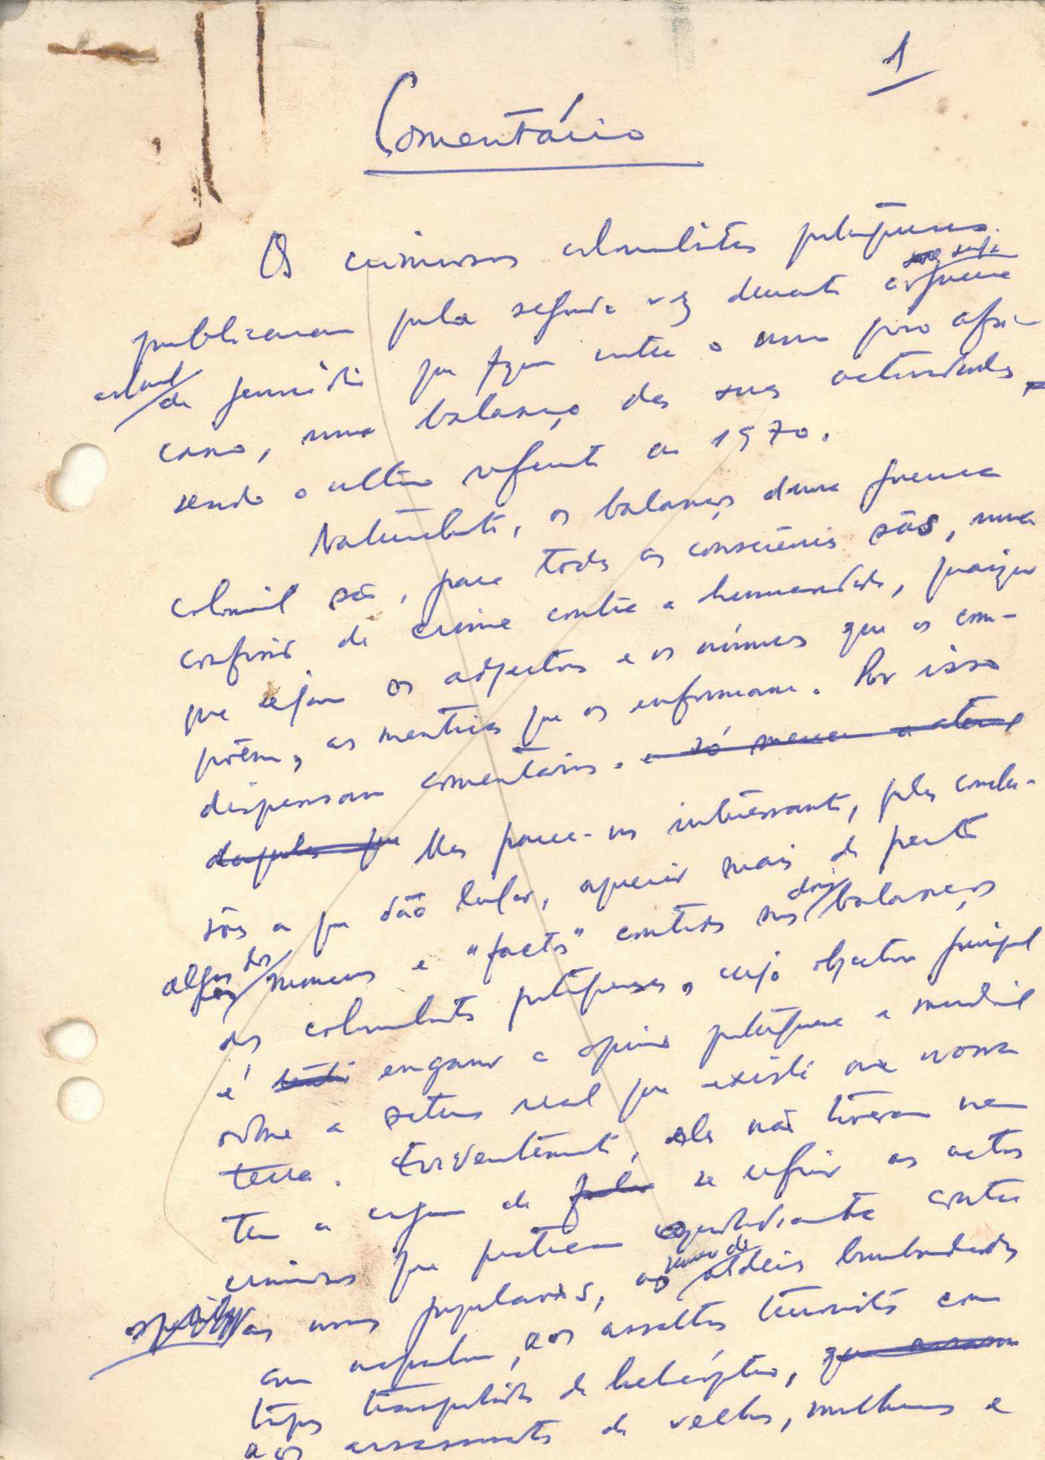 1
Comentário
Os criminosos colonialistas portugueses
publicaram pela segunda vez durante a guerra
colonial de genocídio que fazem contra o nosso povo afri-
cano, um balanço das suas actividades,
sendo o último referente a 1970.
Naturalmente, os balanços duma guerra
colonial são, para todas as consciências sãs, uma
confissão de crime contra a humanidade, quaisquer
que sejam os adjectivos e os números que os com-
põem, as mentiras que os enformam. Por isso
dispensam comentários. e só merecem a atenç
daqueles que Mas parece-nos interessante, pelas conclu-
sões a que dão lugar, apreciar mais de perto
alguns dos números e "factos" contidos nos dois balanços
dos colonialistas portugueses, cujo objectivo principal
é enganar a opinião portuguesa e mundial
sobre a situação real que existe na nossa
terra. Evidentemente, eles não tiveram nem
têm a coragem de se referir aos actos
criminosos que praticam quotidianamente contra
as nossas populações, às aldeias bombardeadas
com napalm, aos assaltos terroristas com
tropas transportadas de helicóptero,
aos assassinatos de velhos, mulheres e